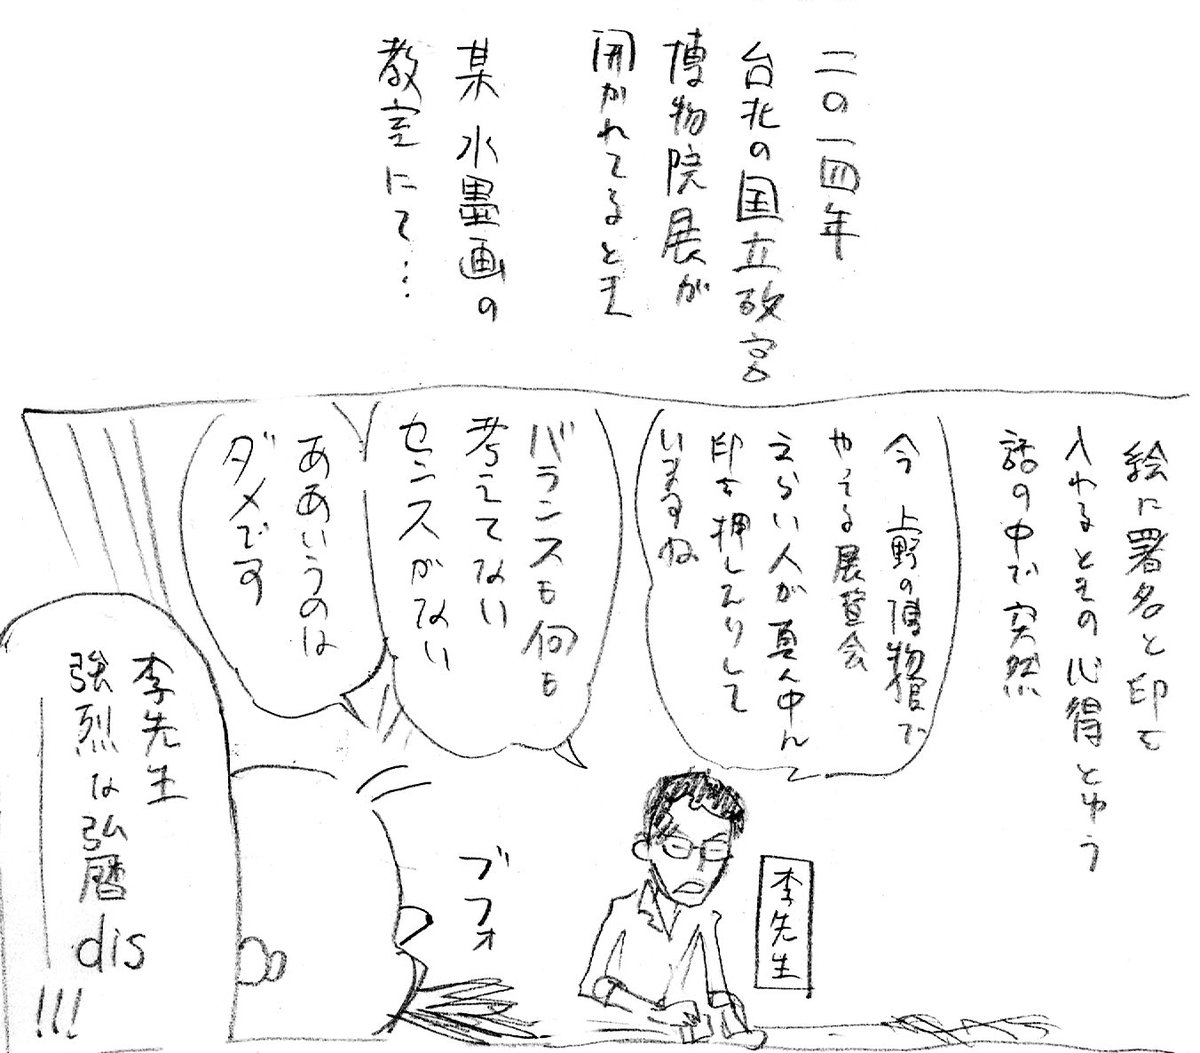 二〇一四年
台北の国立故宮
博物院展が
開かれてるとき
某 水墨画の
教室にて…
絵に署名と印を
入れるときの心得とゆう
話の中で突然
今 上野の博物館で
やってる展覧会
えらい人が真ん中に
印を押したりして
いますね
バランスも何も
考えてない
センスがない
ああいうのは
ダメです
李先生
ブフォ
李先生
強烈な弘暦
dis
!!!